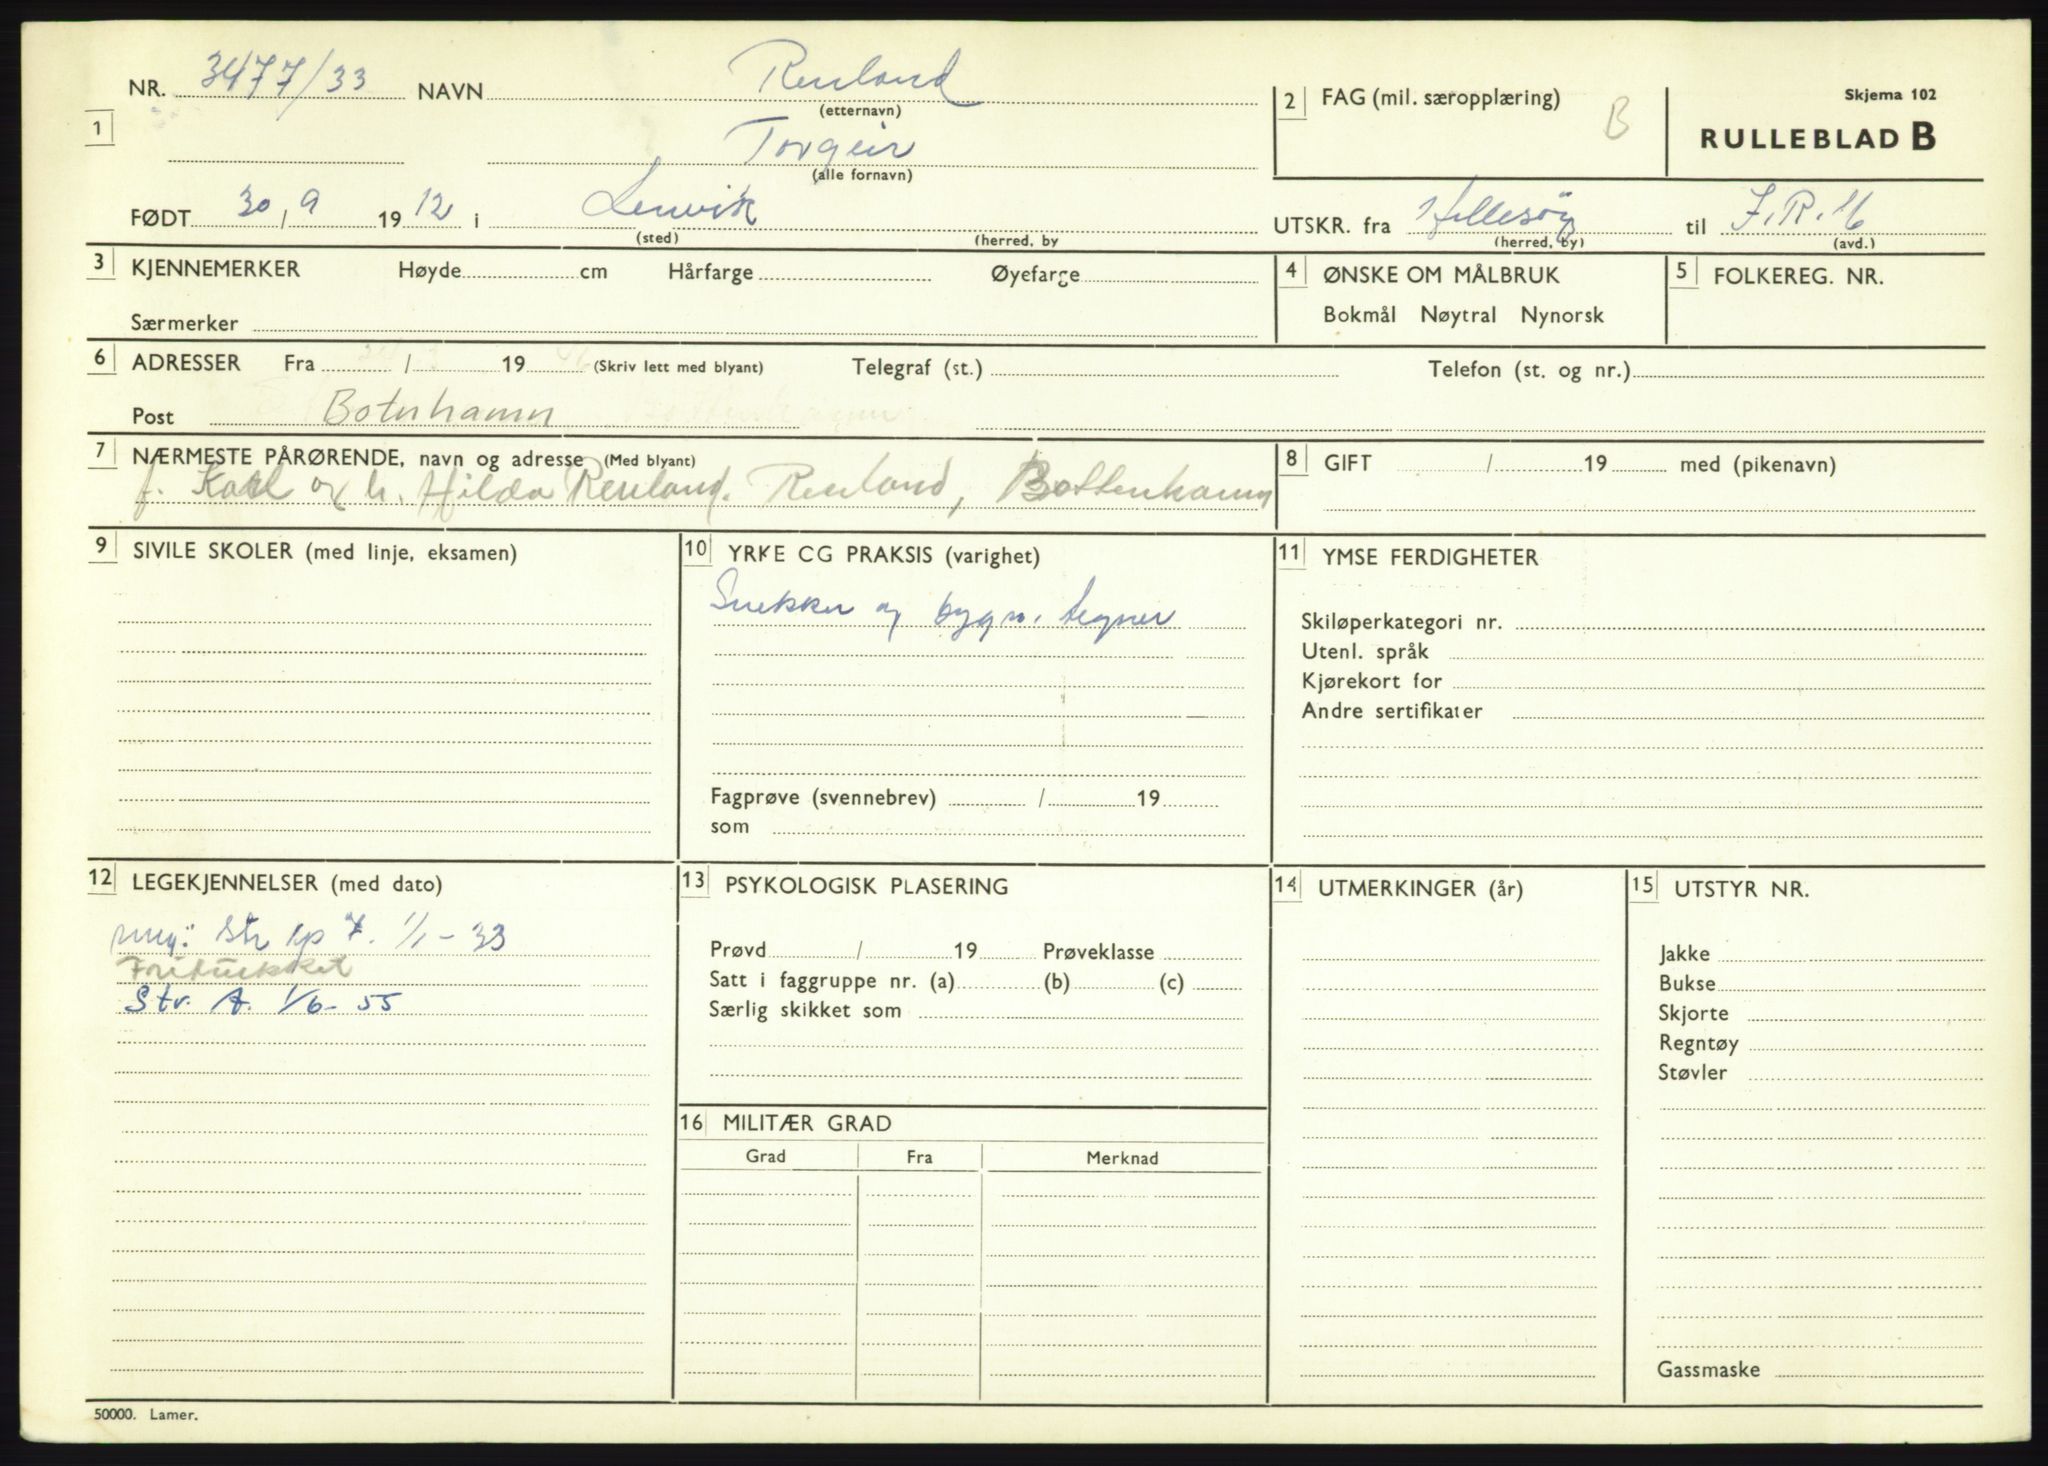 NR. 3477/33 NAVN Renland
(etternavn)
1 Torgeir
(alle fornavn)
2 FAG (mil. særopplæring) B
Skjema 102
RULLEBLAD B
FØDT 30/9 1912 i Lenvik
(sted) (herred, by
UTSKR. fra Hillesøy til J.R. 16
(herred, by) (avd.)
3 KJENNEMERKER Høyde cm Hårfarge Øyefarge
Særmerker
4 ØNSKE OM MÅLBRUK
Bokmål Nøytral Nynorsk
5 FOLKEREG. NR.
6 ADRESSER Fra / 19 (Skriv lett med blyant) Telegraf (st.) Telefon (st. og nr.)
Post Botnhamn
7 NÆRMESTE PÅRØRENDE, navn og adresse (Med blyant)
f. Karl og m. Hilda Renland. Renland, Bottenhamn
8 GIFT / 19 med (pikenavn)
9 SIVILE SKOLER (med linje, eksamen)
10 YRKE CG PRAKSIS (varighet)
Snekker og bygn. tegner
Fagprøve (svennebrev) / 19
som
11 YMSE FERDIGHETER
Skiløperkategori nr.
Utenl. språk
Kjørekort for
Andre sertifikater
12 LEGEKJENNELSER (med dato)
Str kp 7. 1/1-33
Str. A. 1/6-55
13 PSYKOLOGISK PLASERING
Prøvd / 19 Prøveklasse
Satt i faggruppe nr. (a) (b) (c)
Særlig skikket som
14 UTMERKINGER (år)
15 UTSTYR NR.
Jakke
Bukse
Skjorte
Regntøy
Støvler
Gassmaske
16 MILITÆR GRAD
Grad Fra Merknad
50000. Lamer.